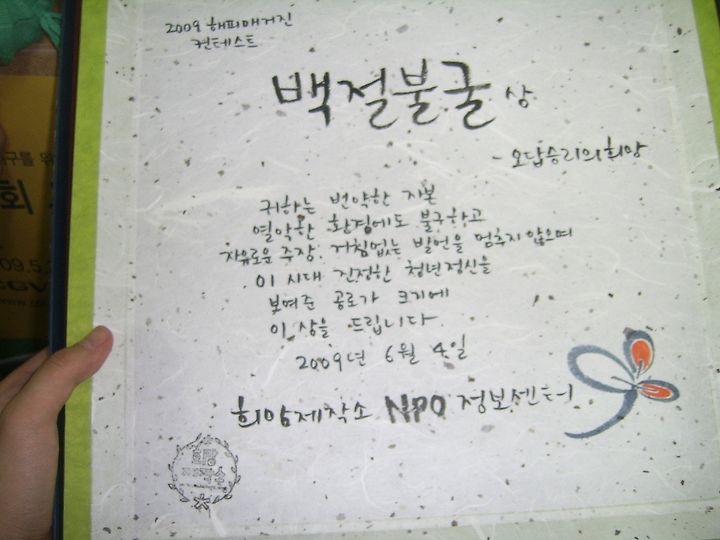 2009 해피매거진
컨테스트
백절불굴 상
- 오답승리의 희망
귀하는 빈약한 자본
열악한 환경에도 불구하고
자유로운 주장, 거침없는 발언을 멈추지 않으며
이 시대 진정한 청년정신을
보여준 공로가 크기에
이 상을 드립니다
2009년 6월 4일
희망제작소 NPO 정보센터
희망
제작소
구를 위
회
09.5.